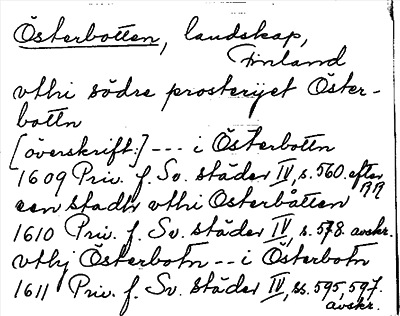 Österbotten, landskap,
Finland
vthi södre prosterijet Öster-
bottn
[överskrift:] --- i Österbottn
1609 Priv. f. Sv. städer IV, s. 560. efter
1919
een stadh vthi Osterbåtten
1610 Priv. f. Sv. städer IV, s. 578. avskr.
vthj Österbotn -- i Österbotn
1611 Priv. f. Sv. städer IV, ss. 595, 597.
avskr.